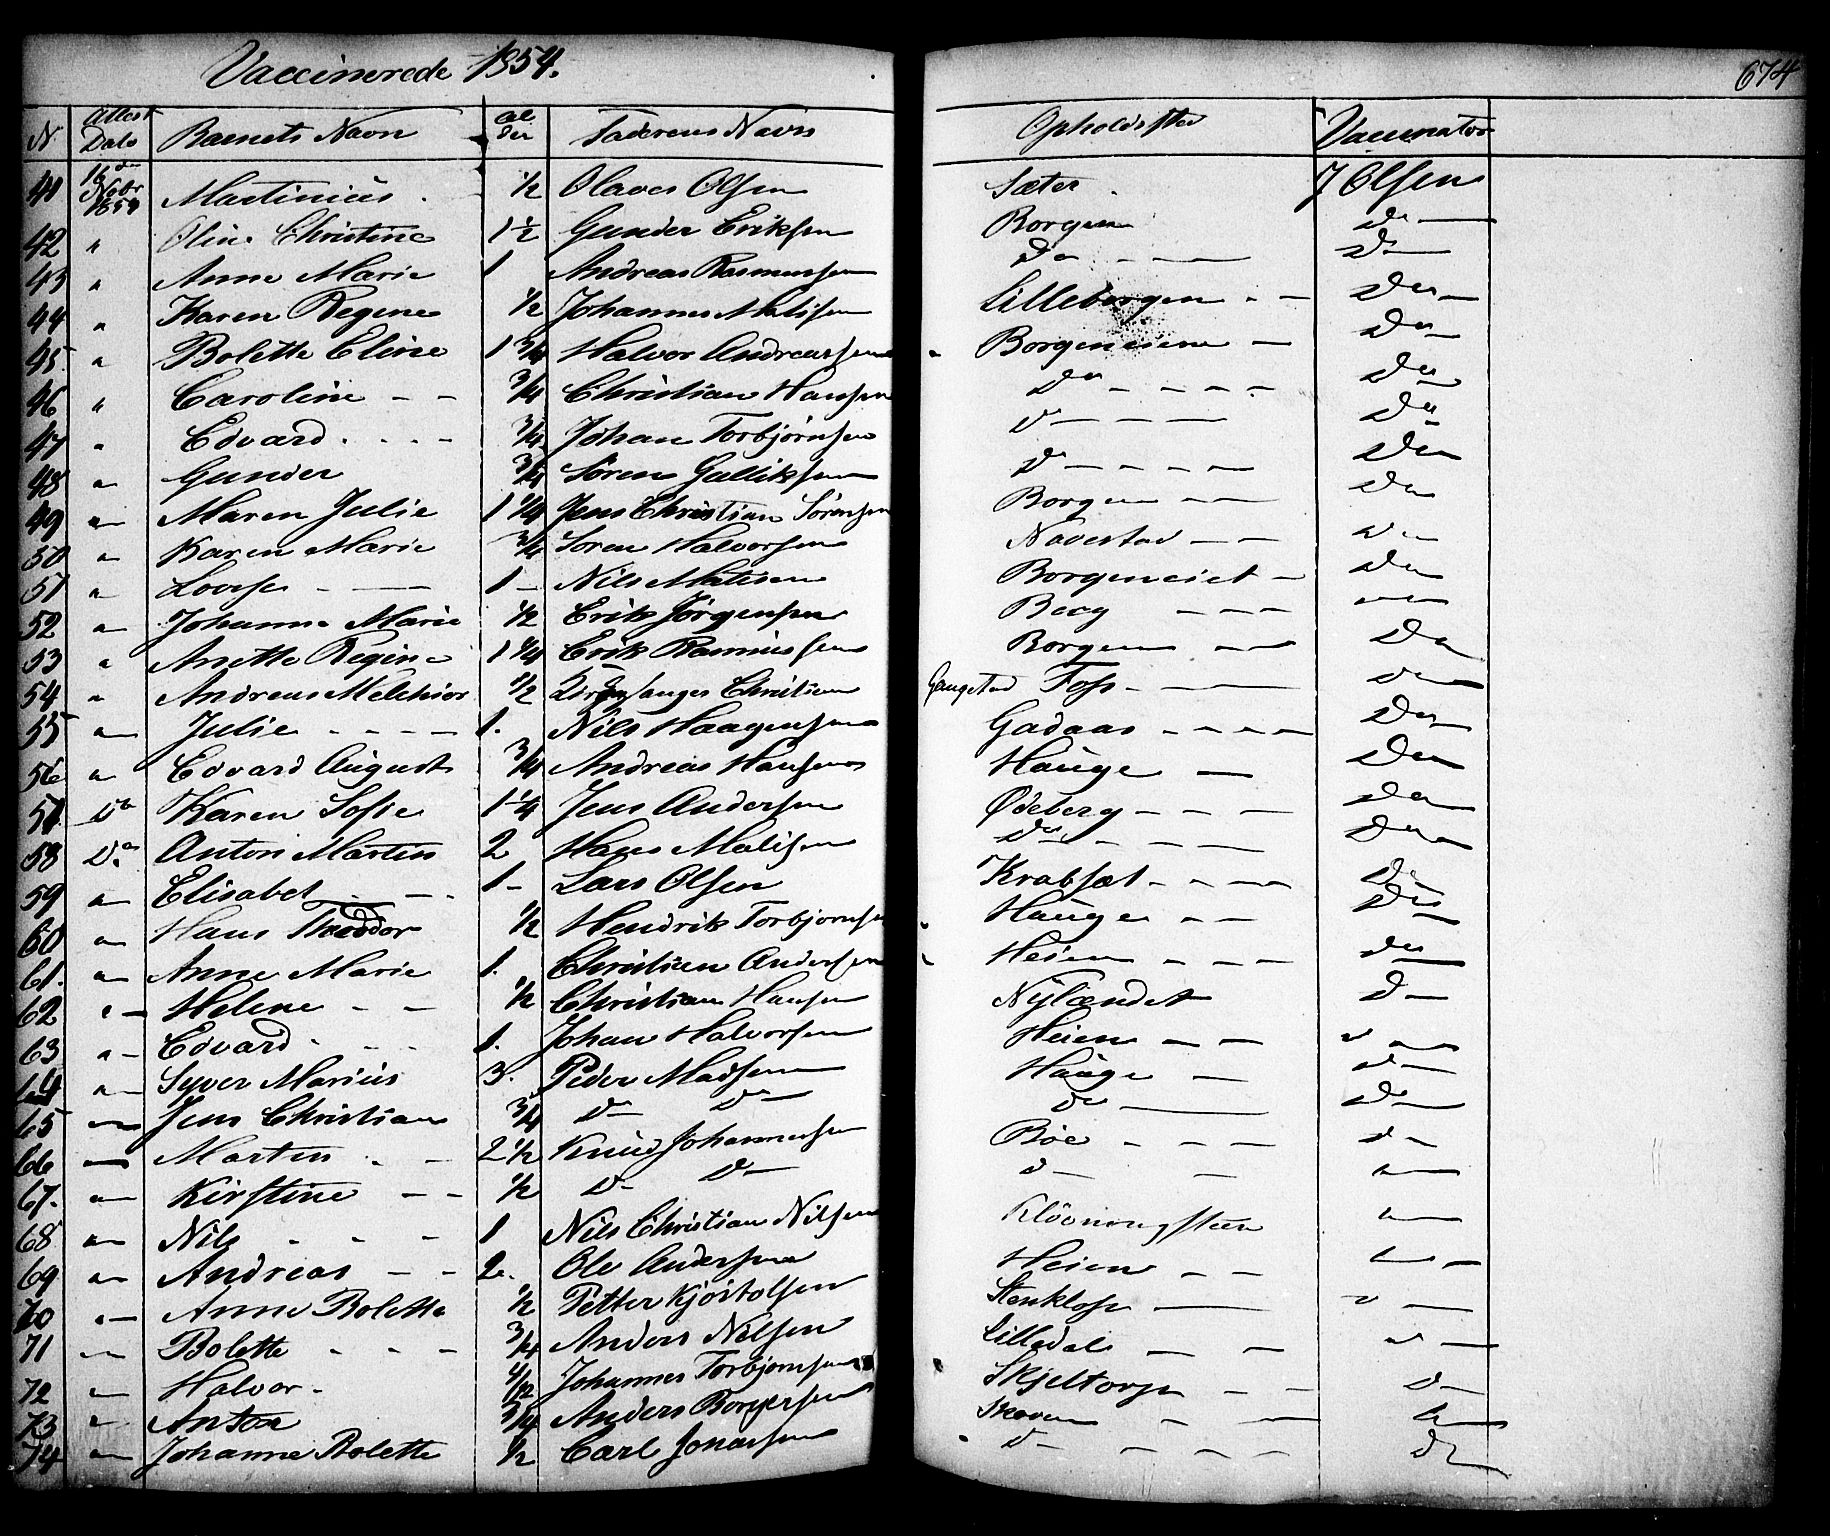 Vaccinerede 1854.
674
N Attest Dato Barnets Navn Alder Faderens Navn Opholdssted Vaccinator
41 16de Nobr 1854 Martinius 1/2 Olaves Olsen Sæter J Olsen
42 " Oline Christine 1 1/2 Gunder Eriksen Borgen Do
43 " Anne Marie 1 Andreas Rasmussen Do Do
44 " Karen Regine 1/2 Johannes Matisen Lilleborgen Do
45 " Bolette Eline 1 3/4 Halvor Andreassen Borgeneiene Do
46 " Caroline 3/4 Christian Hansen Do Do
47 " Edvard 3/4 Johan Torbjørnsen D Do
48 " Gunder 3/4 Søren Gulliksen D Do
49 " Maren Julie 1 1/4 Jens Christian Sørensen Borgen Do
50 " Karen Marie 3/4 Søren Halvorsen Navestad Do
51 " Lovise 1 Nils Matisen Borgeneiet Do
52 " Johanne Marie 1/2 Erik Jørgensen Berg "
53 " Anette Regine 1 1/4 Erik Rasmussen Borgen Do
54 " Andreas Melchior 1/2 Christian Gaugstad Foss Do
55 " Julie 1. Nils Haagensen Gadaas Do
56 " Edvard August 3/4 Andreas Hansen Hauge Do
57 Do Karen Sofie 1 1/4 Jens Andersen Ødeberg Do
58 Do Anton Martin 2 Hans Matisen Do Do
59 " Elisabet 1 Lars Olsen Krabsæt Do
60 " Hans Theodor 1/2 Hendrik Torbjørnsen Hauge Do
61. " Anne Marie 1. Christian Andersen Heien Do
62 " Helene 1/2 Christian Hansen Nylændet D
63 " Edvard 1. Johan Halvorsen Heien "
64 " Syver Marius 3. Peder Madsen Hauge D
65 " Jens Christian 3/4 D D Do D
66 " Martin 2 1/2 Knud Johannessen Böe D
67. " Kirstine 1/2 D D D "
68 " Nils 1 Nils Christian Nilsen Klövningsteen "
69 " Andreas 2. Ole Andersen Heien "
70 " Anne Bolette 1/2 Petter Kjöstolsen Stenklose "
71 " Bolette 3/4 Anders Nilsen Lilledal "
72 " Halvor 4/12 Johannes Torbjørnsen Skjeltorp D
73 " Anton 3/4 Anders Borgersen Skoven "
74 " Johanne Bolette 1/2 Carl Jonassen D D